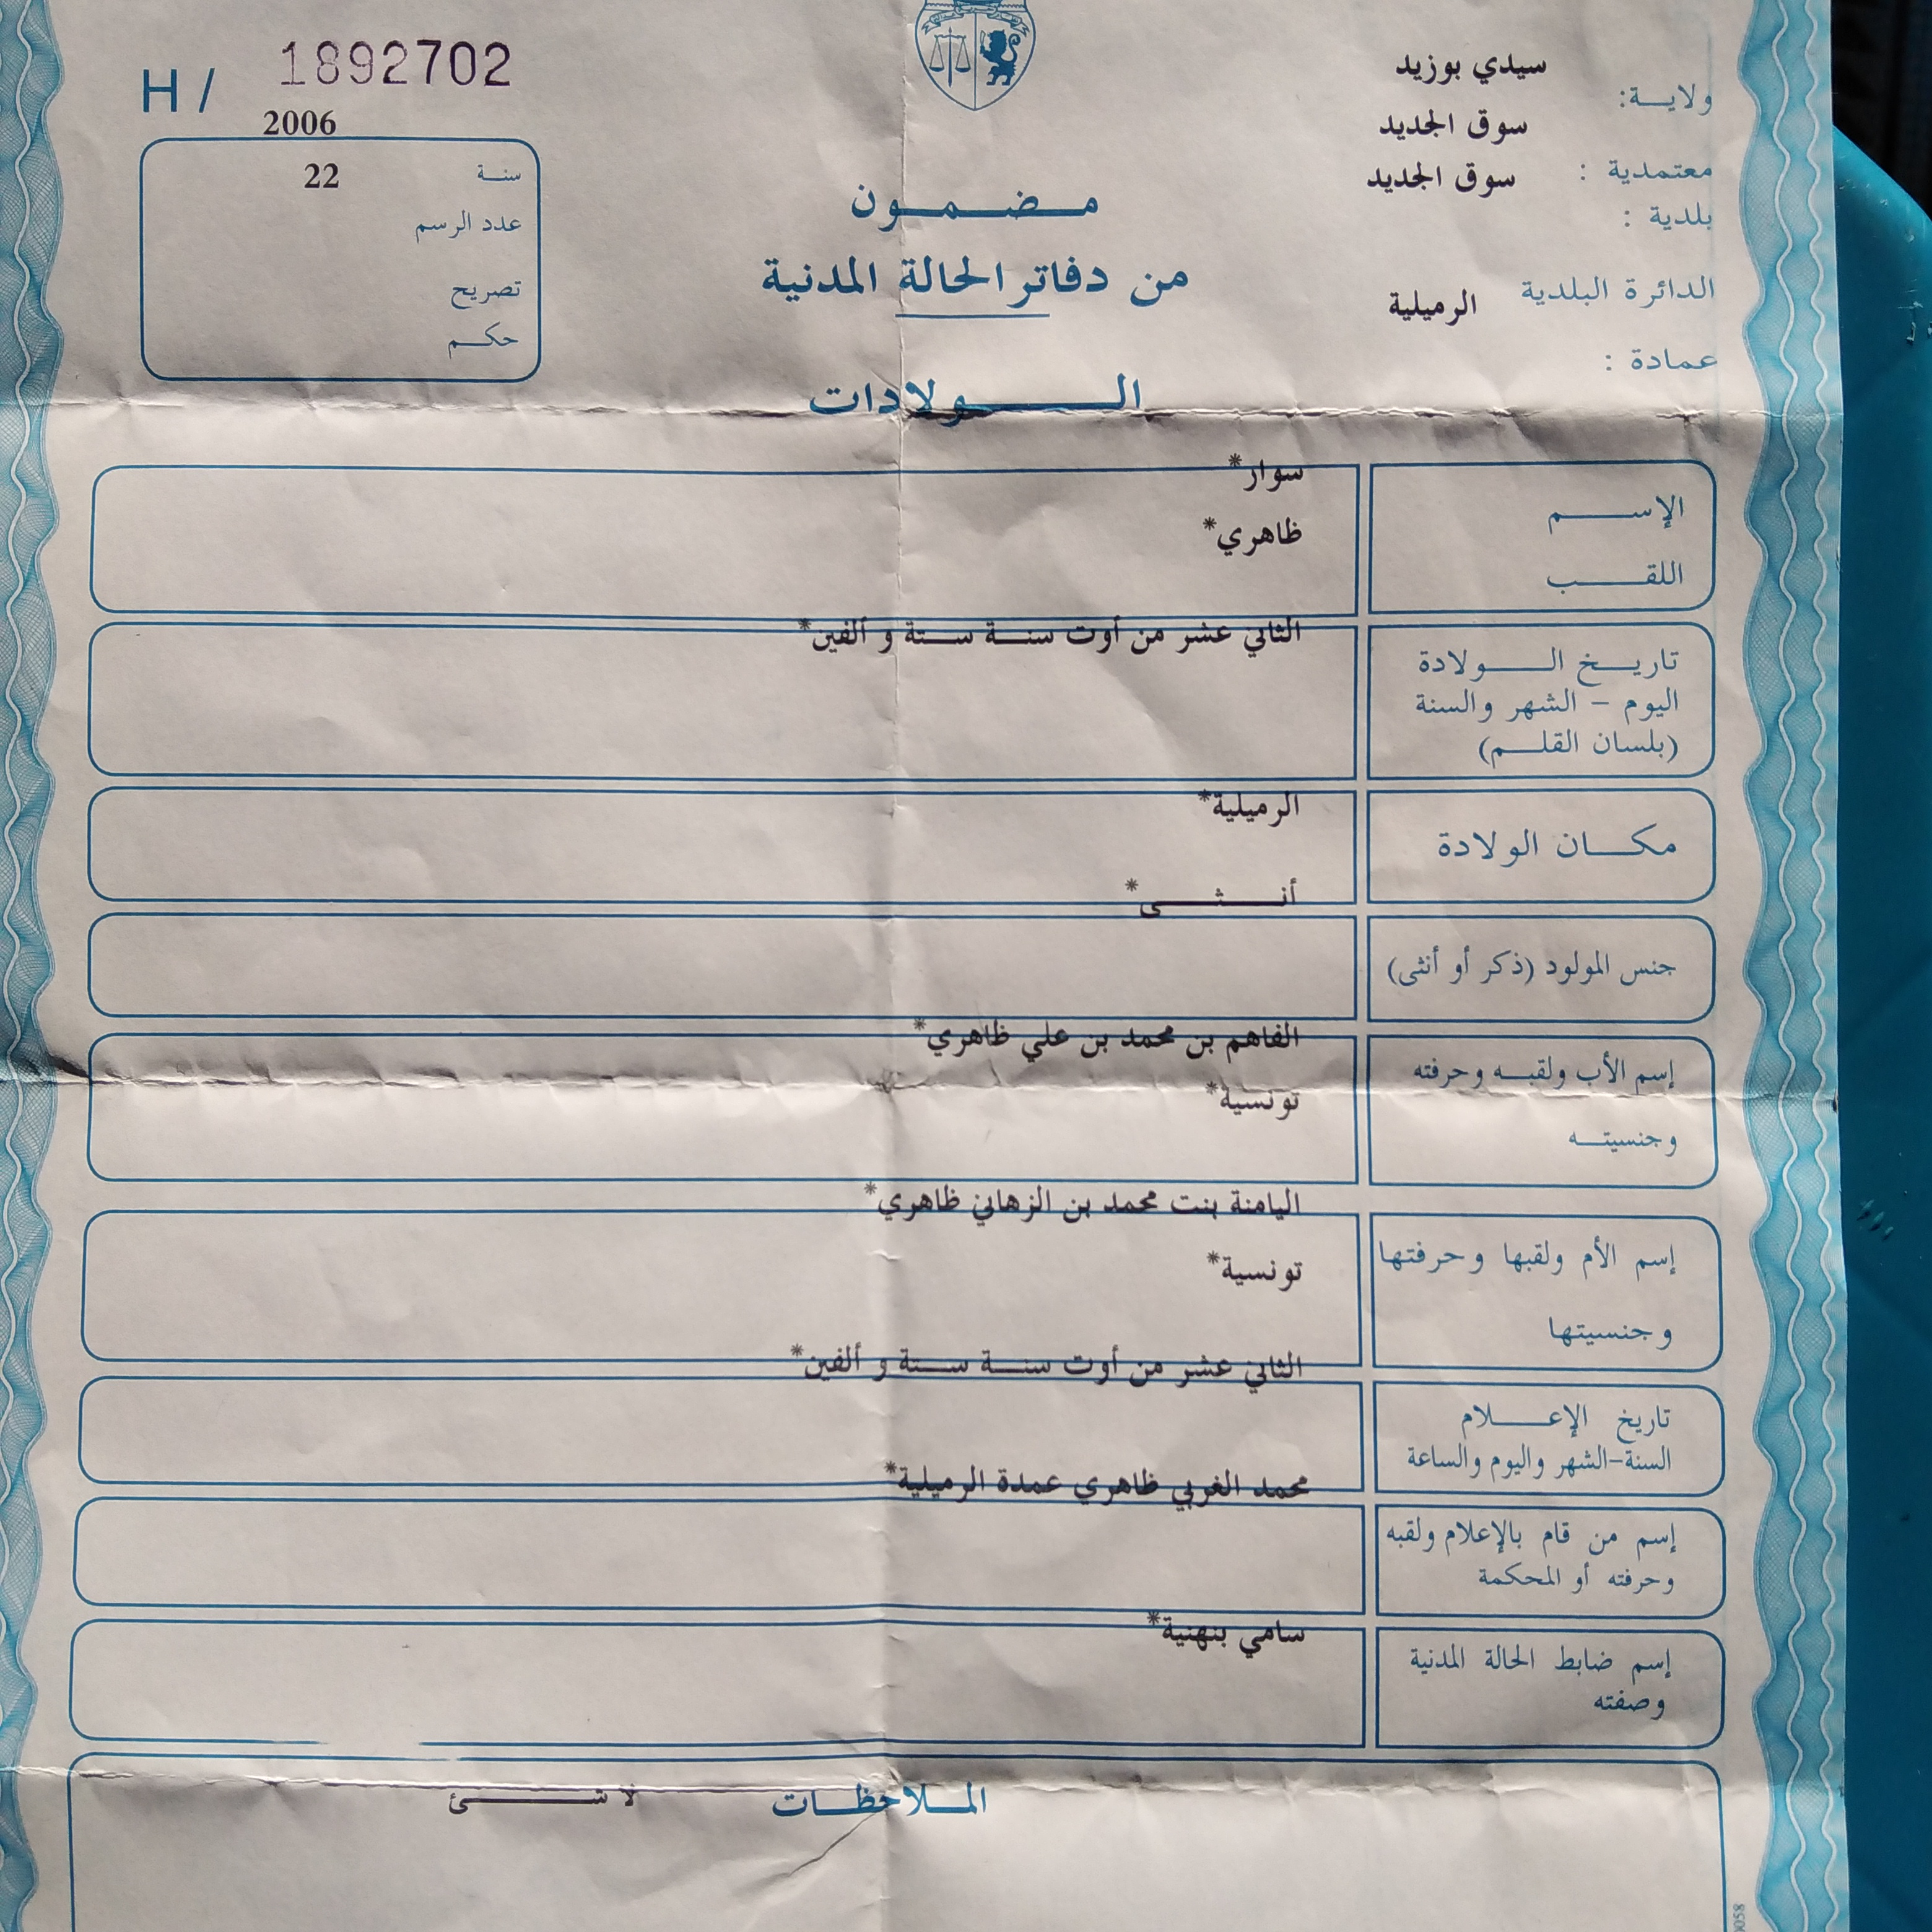 H / 1892702
ولاية: سيدي بوزيد
معتمدية : سوق الجديد
بلدية : سوق الجديد
الدائرة البلدية
عمادة : الرميلية
2006
سنة 22
عدد الرسم
تصريح
حكم
مضمون
من دفاتر الحالة المدنية
الولادات
الإسم سوار*
اللقب ظاهري*
تاريخ الولادة الثاني عشر من أوت سنة ستة و ألفين*
اليوم - الشهر والسنة
(بلسان القلم)
مكان الولادة الرميلية*
جنس المولود (ذكر أو أنثى) أنثى*
إسم الأب ولقبه وحرفته الفاهم بن محمد بن علي ظاهري*
وجنسيته تونسية*
إسم الأم ولقبها وحرفتها اليامنة بنت محمد بن الزهاني ظاهري*
وجنسيتها تونسية*
تاريخ الإعلام الثاني عشر من أوت سنة ستة و ألفين*
السنة-الشهر واليوم والساعة
إسم من قام بالإعلام ولقبه محمد الغربي ظاهري عمدة الرميلية*
وحرفته أو المحكمة
إسم ضابط الحالة المدنية سامي بنهنية*
وصفته
الملاحظات لا شئ